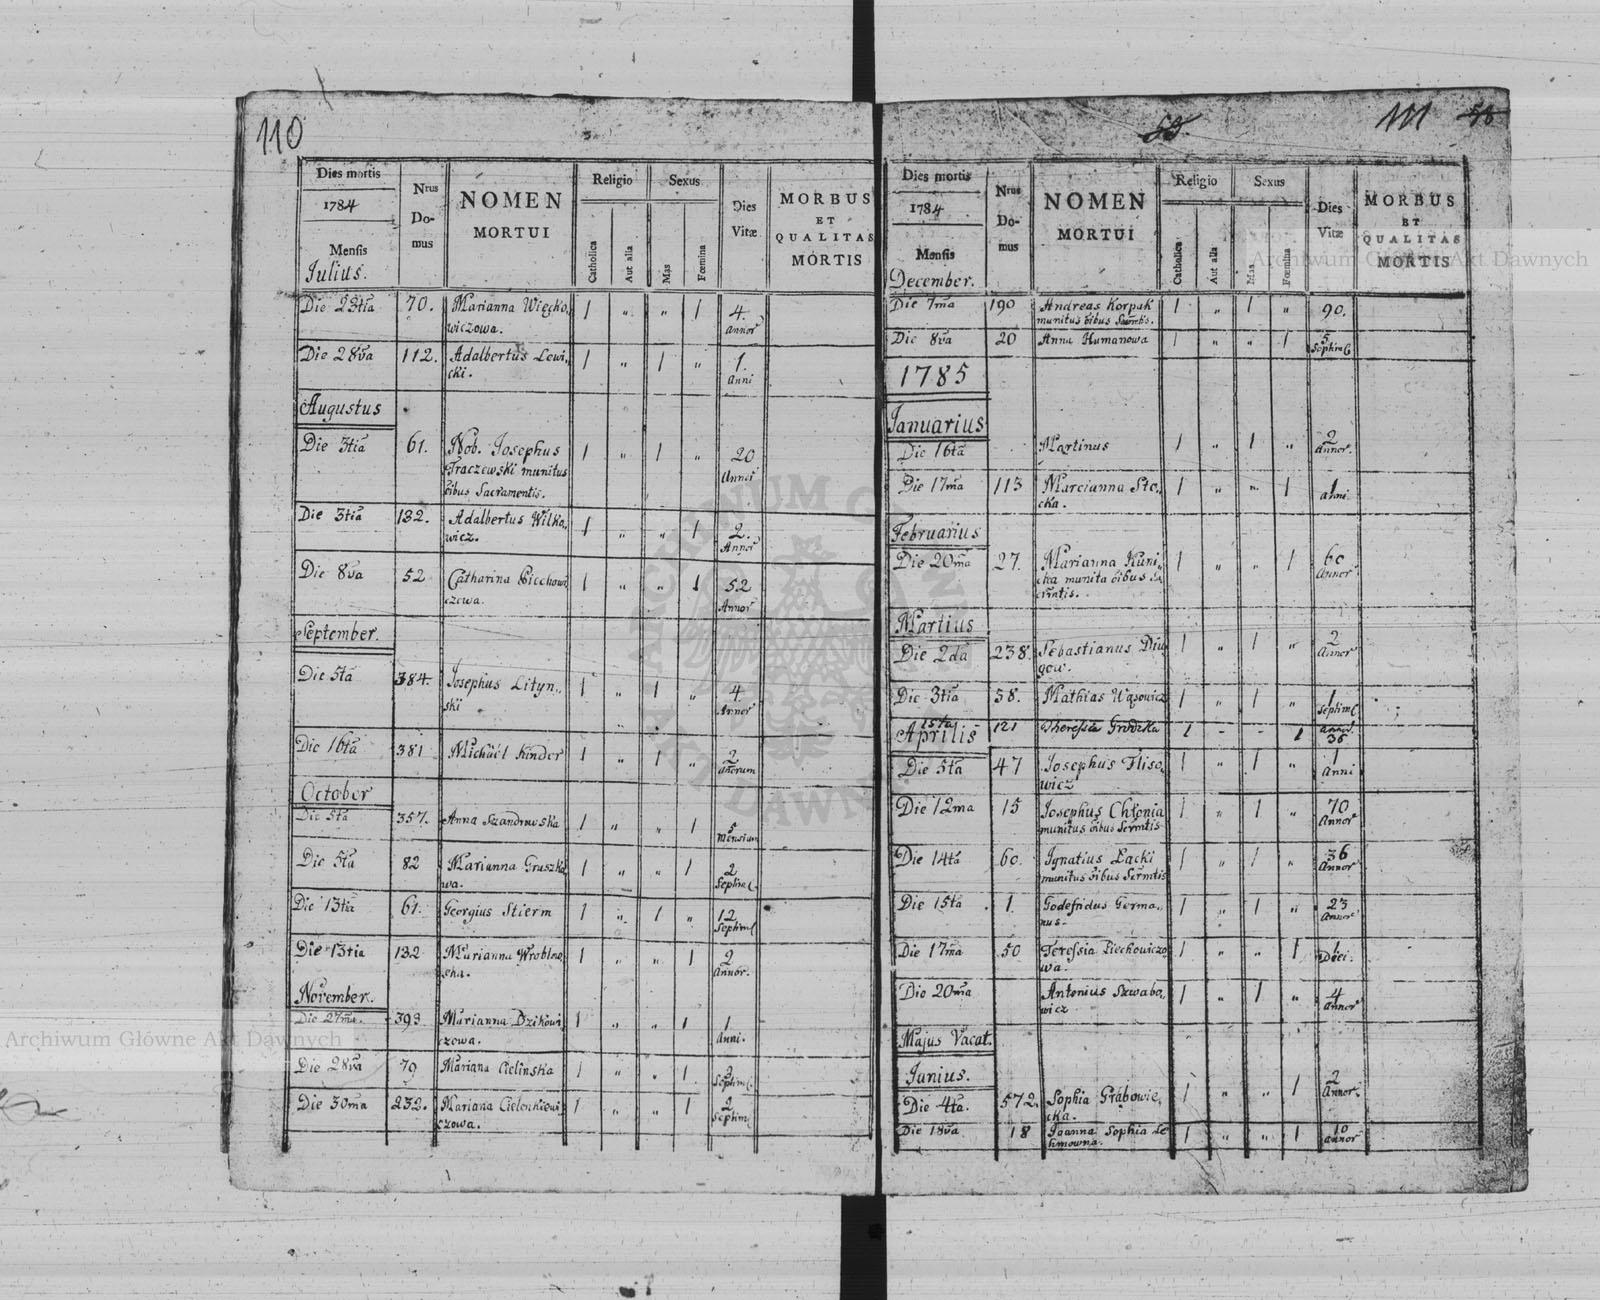 110
Dies mortis
1784
Mensis
Julius.
Nrus
Do-
mus
NOMEN
MORTUI
Religio
Catholica
Aut alia
Sexus
Mas
Fœmina
Dies
Vitæ
MORBUS
ET
QUALITAS
MORTIS
Die 23tia 70. Marianna Więcko, 1 " " 1 4.
wiczowa. Annor
Die 28va 112. Adalbertus Lewi, 1 " 1 " 1.
cki. Anni
Augustus
Die 3tia 61. Nob. Josephus 1 " 1 " 20
Traczewski munitus Annor
oibus Sacramentis.
Die 3tia 132. Adalbertus Wilko, 1 " " 1 2.
wicz. Annor
Die 8va 52 Catharina Piechowi 1 " " 1 52
czowa. Annor
September.
Die 5ta 384. Josephus Lityn, 1 " 1 " 4
ski Annor
Die 16ta 381 Michäel Kinder 1 " 1 " 2
anorum
October
Die 5ta 357. Anna Szandrowska 1 " " 1 5
Mensium
Die 5ta 82 Marianna Gruszko 1 " " 1 2
wa. Septim
Die 13tia 61. Georgius Stierm 1 " 1 " 12
Septim
Die 13tia 132 Marianna Wroblew, 1 " " 1 2
ska. Annor.
November.
Die 27ma. 393 Marianna Dzikowi 1 " " 1 1
czowa. Anni.
Die 28va 79 Mariana Cielinska 1 " " 1 3
Septim
Die 30ma 232. Mariana Cielonkiewi 1 " " 1 2
czowa. Septim
59
111 58
Dies mortis
1784
Mensis
December.
Nrus
Do-
mus
NOMEN
MORTUI
Religio
Catholica
Aut alia
Sexus
Mas
Fœmina
Dies
Vitæ
MORBUS
ET
QUALITAS
MORTIS
Die 7ma 190 Andreas Korpak 1 " 1 " 90.
munitus oibus Sacrmtis.
Die 8va 20 Anna Humanowa 1 " " 1 5
Septim
1785
Januarius
Die 16ta Martinus 1 " 1 " 2
Annor.
Die 17ma 113 Marcianna Sto, 1 " " 1 1
cka. anni
Februarius
Die 20ma 27. Marianna Kuni, 1 " " 1 60
cka munita oibus Sa Annor
crmtis.
Martius
Die 2da 238. Sebastianus Dłu 1 " 1 " 2
gou. Annor
Die 3tia 58. Mathias Wąsowicz 1 " 1 " 1
Septim
15ta 121 Theressia Grodzka 1 - - 1 annor.
Aprilis 36
Die 5ta 47 Josephus Fliso, 1 " 1 " 1
wicz Anni
Die 12ma 15 Josephus Chłonia 1 " 1 " 70
munitus oibus Sermtis Annor
Die 14ta 60. Ignatius Lacki 1 " 1 " 36
munitus oibus Sermtis Annor
Die 15ta 1. Godefridus Germa, 1 " 1 " 23
nus. Annor
Die 17ma 50 Teressia Piechowiczo 1 " " 1
wa.
Die 20ma Antonius Szwabo, 1 " 1 " 4
wicz Annor
Majus Vacat.
Junius.
Die 4ta. 572. Sophia Grabowie, 1 " " 1 2
cka. Annor.
Die 18va 18 Joanna Sophia Le 1 " " 1 10
hmowna. annor
Archiwum Główne Akt Dawnych
Archiwum Główne Akt Dawnych
ARCHIWUM GŁÓWNE AKT DAWNYCH